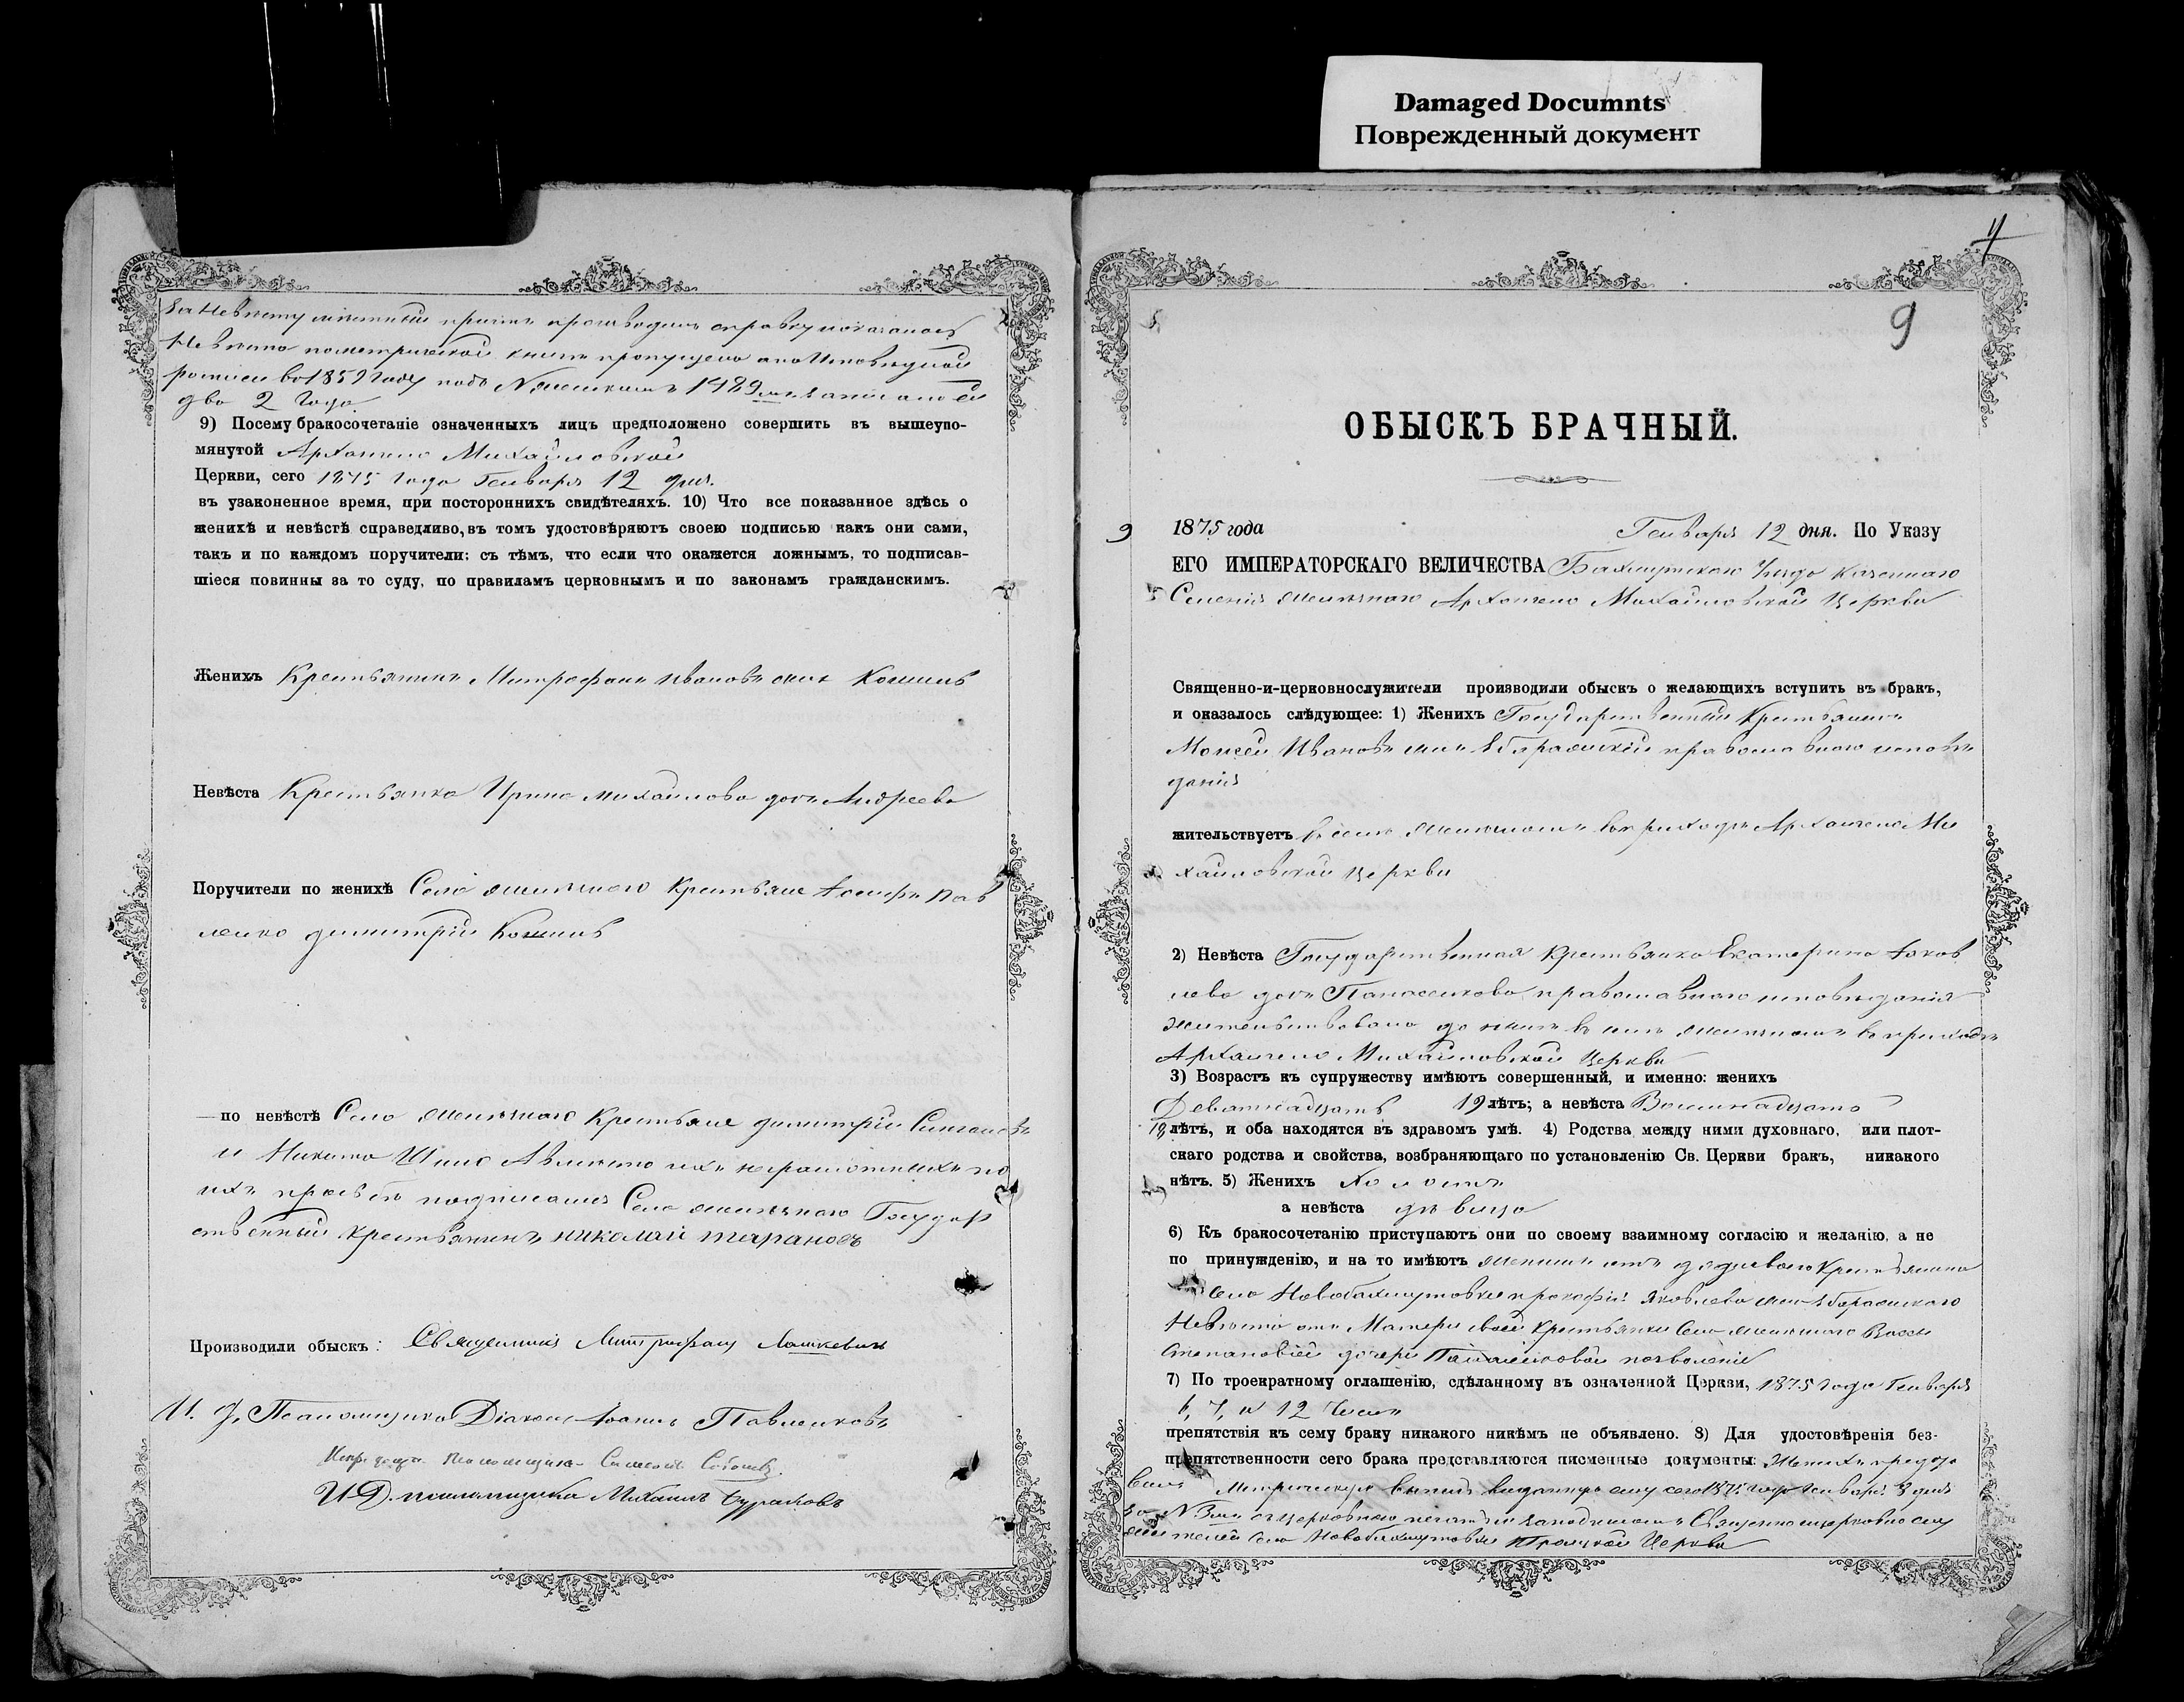 Damaged Documnts
Поврежденный документ
За Невесту местный причт производил справку показанной
Невеста по метрической книги пропущено а по Исповедной
росписи во 1859 году под № женским 1489 записано ей
два 2 года
9) Посему бракосочетаніе означенныхъ лицъ предположено совершить въ вышеупо-
мянутой Архангело Михайловской
Церкви, сего 1875 года Генваря 12 дня.
въ узаконенное время, при постороннихъ свидѣтеляхъ. 10) Что все показанное здѣсь о
женихѣ и невѣстѣ справедливо, въ томъ удостовѣряютъ своею подписью какъ они сами,
такъ и по каждомъ поручители; съ тѣмъ, что если что окажется ложнымъ, то подписав-
шіеся повинны за то суду, по правиламъ церковнымъ и по законамъ гражданскимъ.
Женихъ Крестьянинъ Митрофанъ Ивановъ сынъ
Невѣста Крестьянка Ирина Михайлова дочь Андреева
Поручители по женихѣ Села Крестьяне Іосифъ Пав
ленко Димитрій
по невѣстѣ Села Крестьяне Димитрій
и Никита Шило А вместо ихъ неграмотныхъ по
ихъ просьбе подписался Села Государ
ственный Крестьянинъ николай тарановъ
Производили обыскъ: Священникъ Митрофанъ Лашкевичъ
И. д. Псаломщика Діаконъ Іоаннъ Павленковъ
Псаломщика
И Д. псаломщика Михаилъ Бураковъ
4
9
ОБЫСКЪ БРАЧНЫЙ.
9 1875 года Генваря 12 дня. По Указу
ЕГО ИМПЕРАТОРСКАГО ВЕЛИЧЕСТВА Бахмутскаго Уезда казеннаго
Селенія Архангело Михайловской Церкви
Священно-и-церковнослужители производили обыскъ о желающихъ вступить въ бракъ,
и оказалось слѣдующее: 1) Женихъ Государственный Крестьянинъ
Моисей Ивановъ сынъ православнаго испове
данія
жительствуетъ в селе в приходе Архангело Ми
хайловской Церкви
2) Невѣста Государственная Крестьянка Екатерина Іаков
лева дочь Панасенкова православнаго исповеданія
жительствовала до ныне в селе в приходе
Архангело Михайловской Церкви
3) Возрастъ къ супружеству имѣютъ совершенный, и именно: женихъ
Девятнадцать 19 лѣтъ; а невѣста Восимнадцать
18 лѣтъ, и оба находятся въ здравомъ умѣ. 4) Родства между ними духовнаго, или плот-
скаго родства и свойства, возбраняющаго по установленію Св. Церкви бракъ, никакого
нѣтъ. 5) Женихъ Холостъ
а невѣста девица
6) Къ бракосочетанію приступаютъ они по своему взаимному согласію и желанію, а не
по принужденію, и на то имѣютъ женихъ отъ Крестьянина
Села Новобахмутовки Прокофія Яковлева сына
Невеста отъ Матери своей Крестьянки Села
Степановой дочери Панасенковой позволеніе
7) По троекратному оглашенію, сдѣланному въ означенной Церкви, 1875 года Генваря
6, 7, и 12 Чиселъ
препятствія къ сему браку никакого никѣмъ не объявлено. 8) Для удостовѣренія без-
препятственности сего брака представляются писменные документы: Женихъ предста
вилъ Метрическую выпись выданную ему сего 1875 года Генваря 8 дня
за № съ церковною печатью и за подписомъ Священноцерковнослу
жителей Села Новобахмутовки Троицкой Церкви